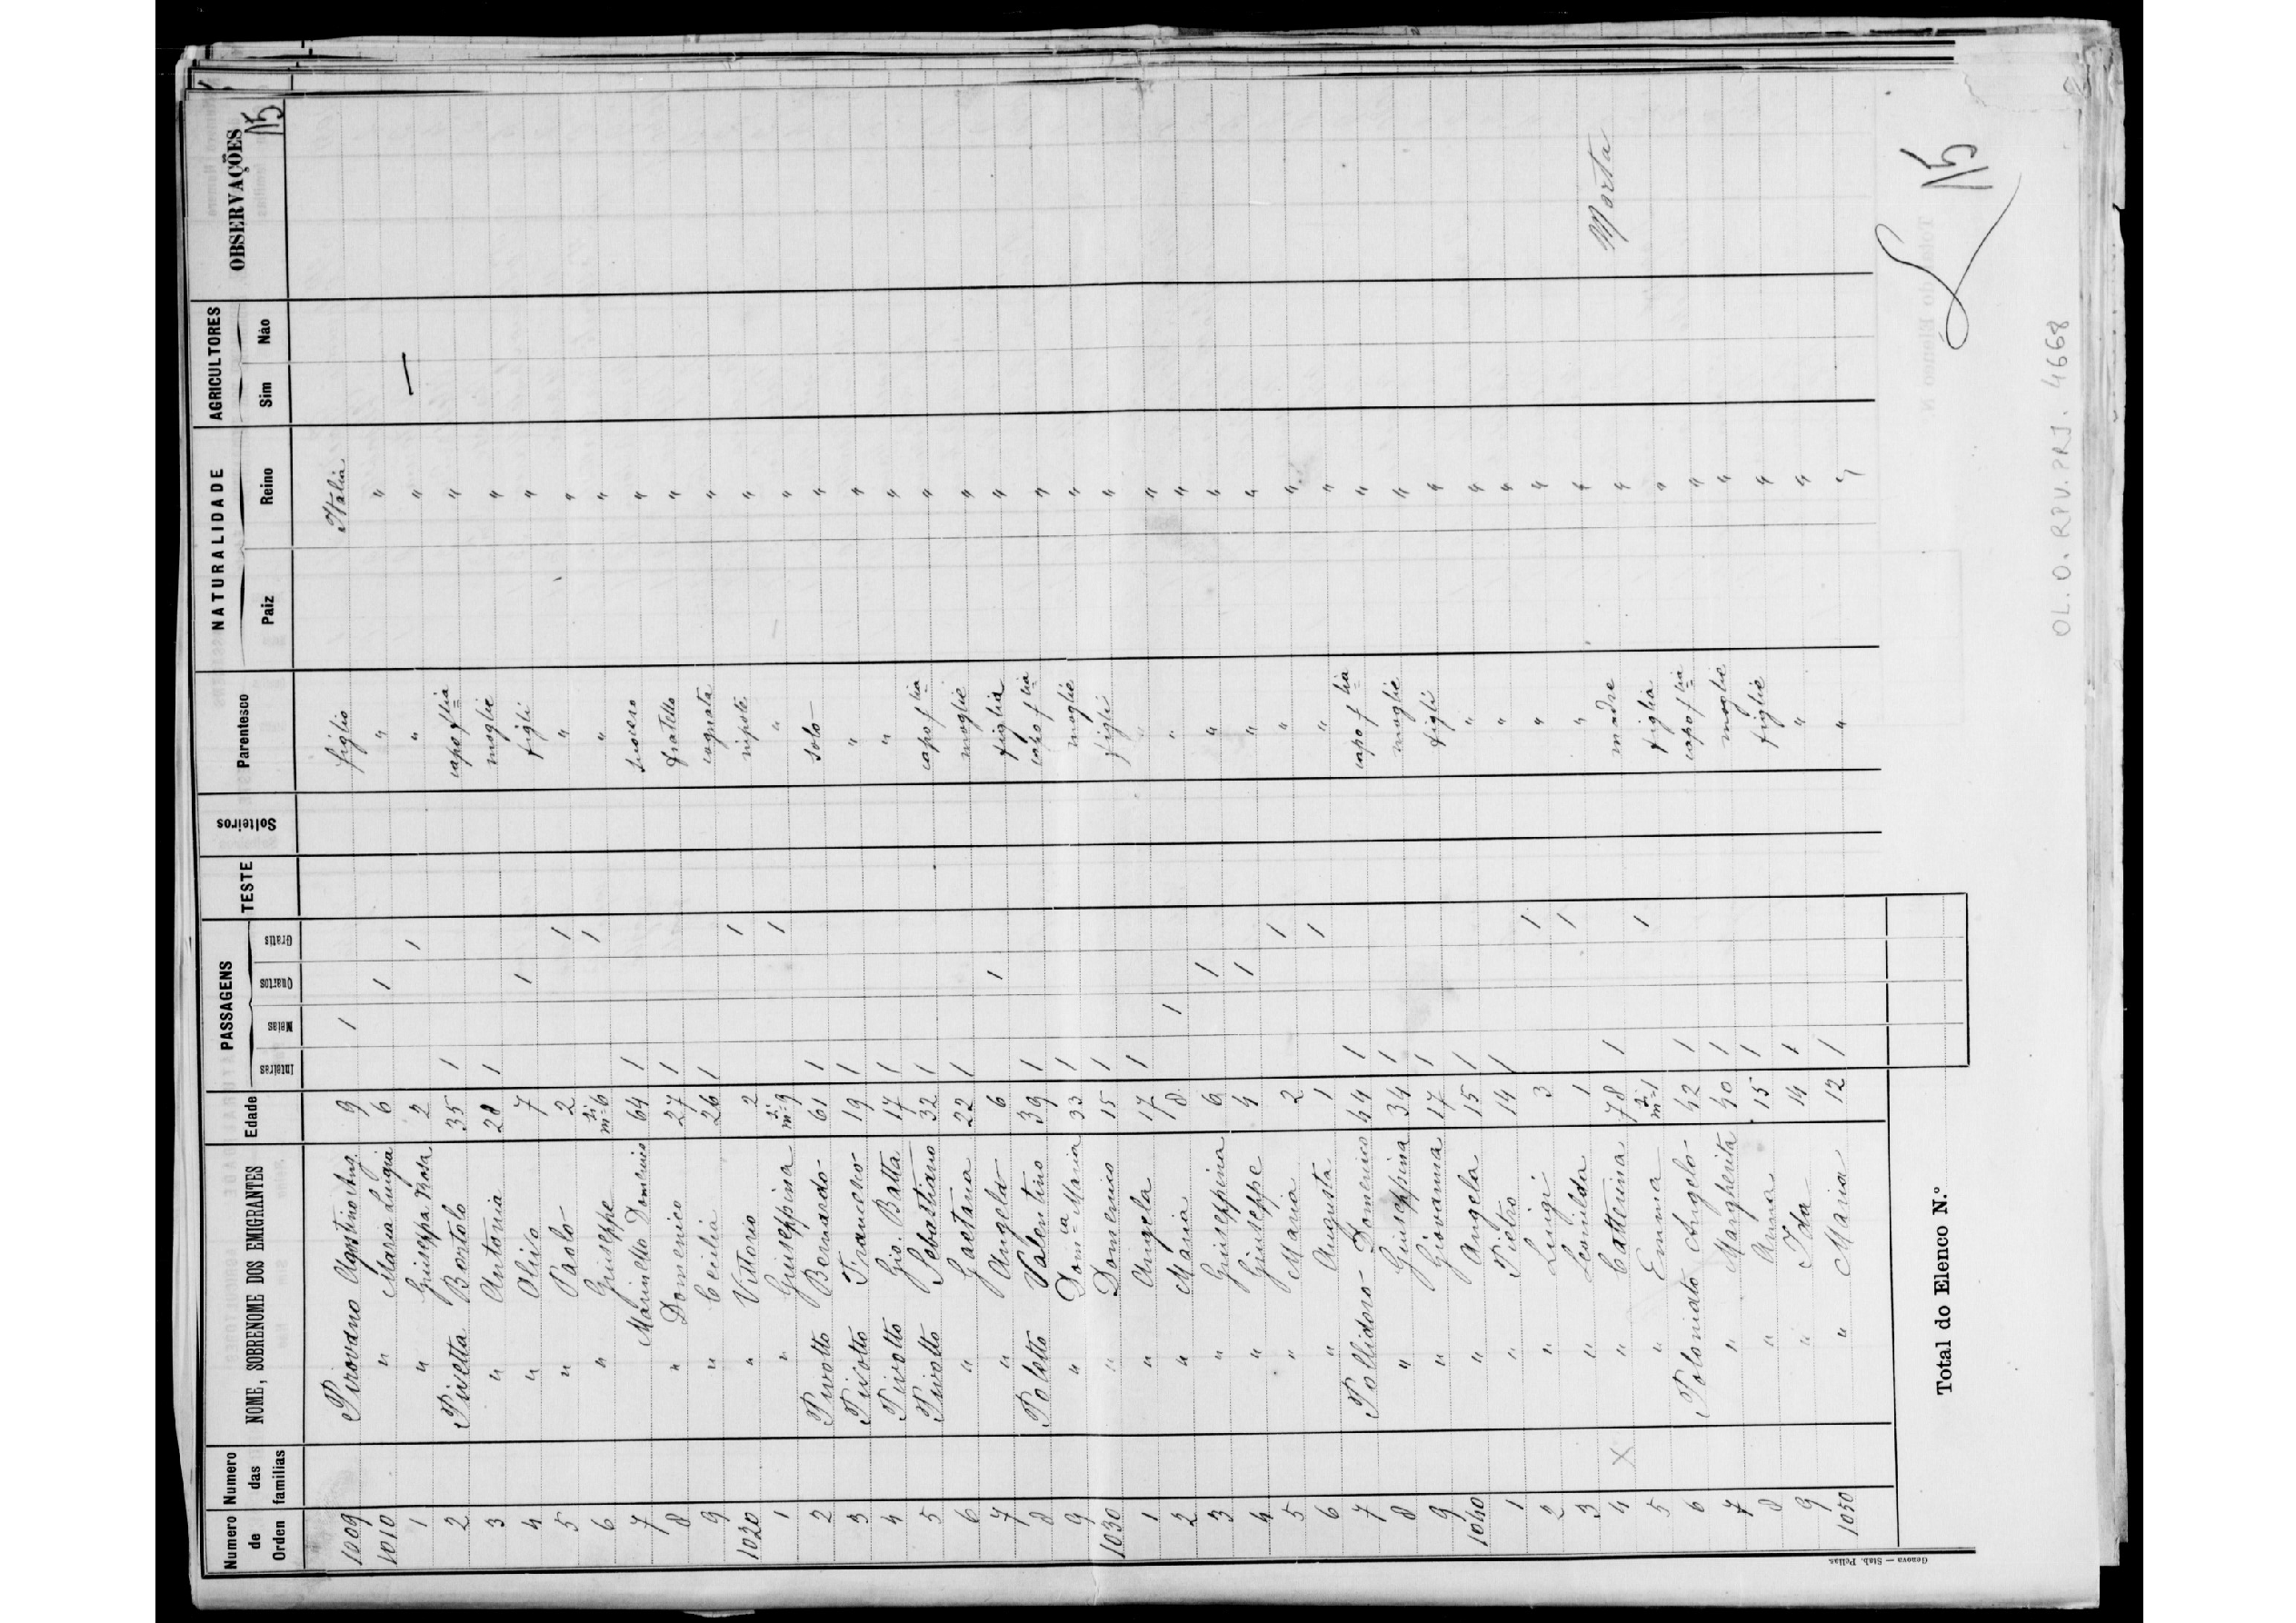 Numero de Orden Numero das familias NOME, SOBRENOME DOS EMIGRANTES Edade PASSAGENS Inteiras Meias Quartos Gratis TESTE Solteiros Parentesco NATURALIDADE Paiz Reino AGRICULTORES Sim Não OBSERVAÇÕES
15
1009 Pirovano Agostino Ang. 9 1 figlio Italia
1010 " Maria Luigia 6 1 " "
1 " Giuseppa Rosa 2 1 " " —
2 Pivetta Bortolo 35 1 capo f lia "
3 " Antonia 28 1 moglie "
4 " Olivo 7 1 figli "
5 " Paolo 2 1 " "
6 " Giuseppe m=si 6 1 " "
7 Marinello Domenico 64 1 suocero "
8 " Domenico 27 1 fratello "
9 " Cecilia 26 1 cognata "
1020 " Vittorio 2 1 nipote "
1 " Giuseppina m=si 9 1 " "
2 Pivotto Bernardo 61 1 solo "
3 Pivotto Francesco 19 1 " "
4 Pivotto Gio. Batta 17 1 " "
5 Pivotto Sebastiano 32 1 capo f lia "
6 " Gaetana 22 1 moglie "
7 " Angela 6 1 figlia "
8 Poletto Valentino 39 1 capo f lia "
9 " Dom=ca Maria 33 1 moglie "
1030 " Domenico 15 1 figli "
1 " Angela 17 1 " "
2 " Maria 8 1 " "
3 " Giuseppina 6 1 " "
4 " Giuseppe 4 1 " "
5 " Maria 2 1 " "
6 " Augusta 1 1 " "
7 Pollidoro Domenico 44 1 capo f lia "
8 " Giuseppina 34 1 moglie "
9 " Giovanna 17 1 figli "
1040 " Angela 15 1 " "
1 " Pietro 14 1 " "
2 " Luigi 3 1 " "
3 " Leonilda 1 1 " "
4 X " Catterina 78 1 madre " Morta
5 " Emma m=si 1 1 figlia "
6 Poloniato Angelo 42 1 capo f lia "
7 " Margherita 40 1 moglie "
8 " Anna 15 1 figlie "
9 " Ida 14 1 " "
1050 " Maria 12 1 " "
Total do Elenco N.º
15
Genova — Stab. Pellas
OL.O.RPV.PRJ.4668